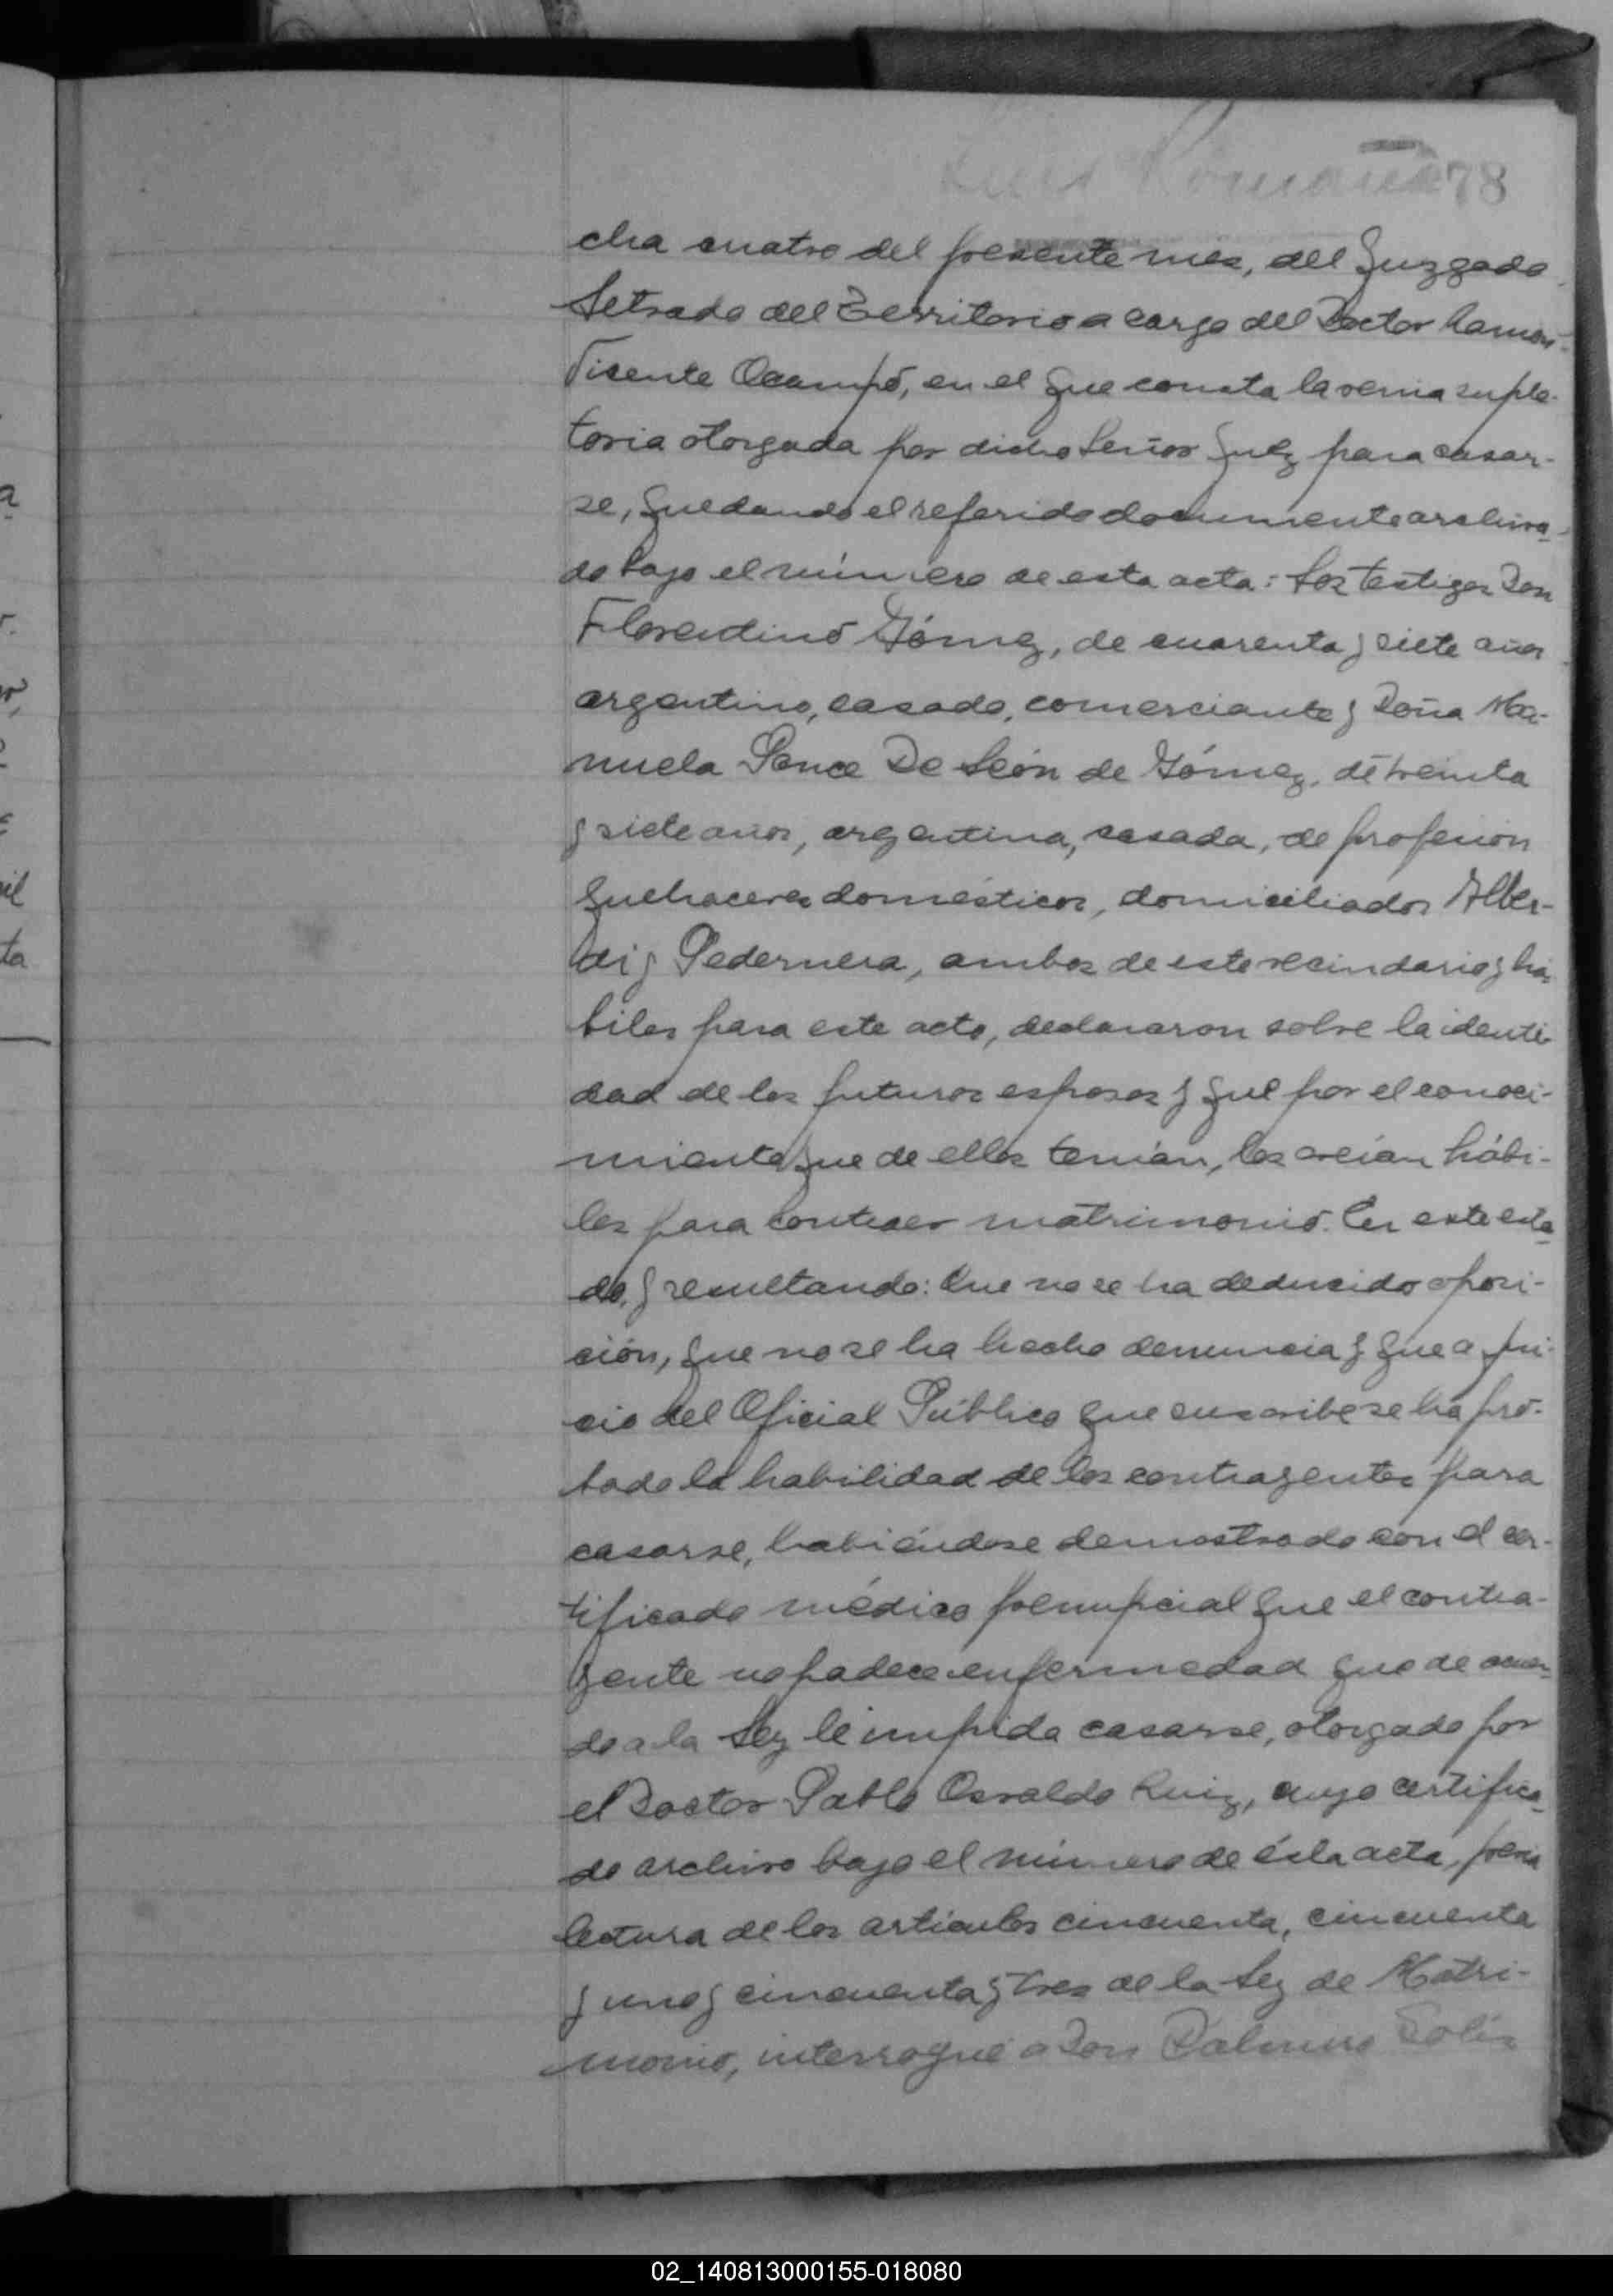 Luis Romana 78
cha cuatro del presente mes, del Juzgado
Letrado del Territorio a cargo del Doctor Ramón
Vicente Ocampo, en el que consta la venia suple-
toria otorgada por dicho Señor Juez para casar-
se, quedando el referido documento archiva-
do bajo el número de esta acta: Los testigos Don
Florentino Gómez, de cuarenta y siete años
argentino, casado, comerciante y Doña Ma-
nuela Ponce De León de Gómez, de treinta
y siete años, argentina, casada, de profesión
quehaceres domésticos, domiciliados Alber-
di y Pedernera, ambos de este vecindario y há-
biles para este acto, declararon sobre la identi-
dad de los futuros esposos y que por el conoci-
miento que de ellos tenían, los creían hábi-
les para contraer matrimonio. En este esta-
do, y resultando: Que no se ha deducido oposi-
ción, que no se ha hecho denuncia y que a jui-
cio del Oficial Público que suscribe se ha pro-
bado la habilidad de los contrayentes para
casarse, habiéndose demostrado con el cer-
tificado médico prenupcial que el contra-
yente no padece enfermedad que de acuer-
do a la Ley le impida casarse, otorgado por
el Doctor Pablo Osvaldo Ruiz, cuyo certifica-
do archivo bajo el número de ésta acta, previa
lectura de los artículos cincuenta, cincuenta
y uno y cincuenta y tres de la Ley de Matri-
monio, interrogué a Don Palmiro Solís
02_140813000155-018080